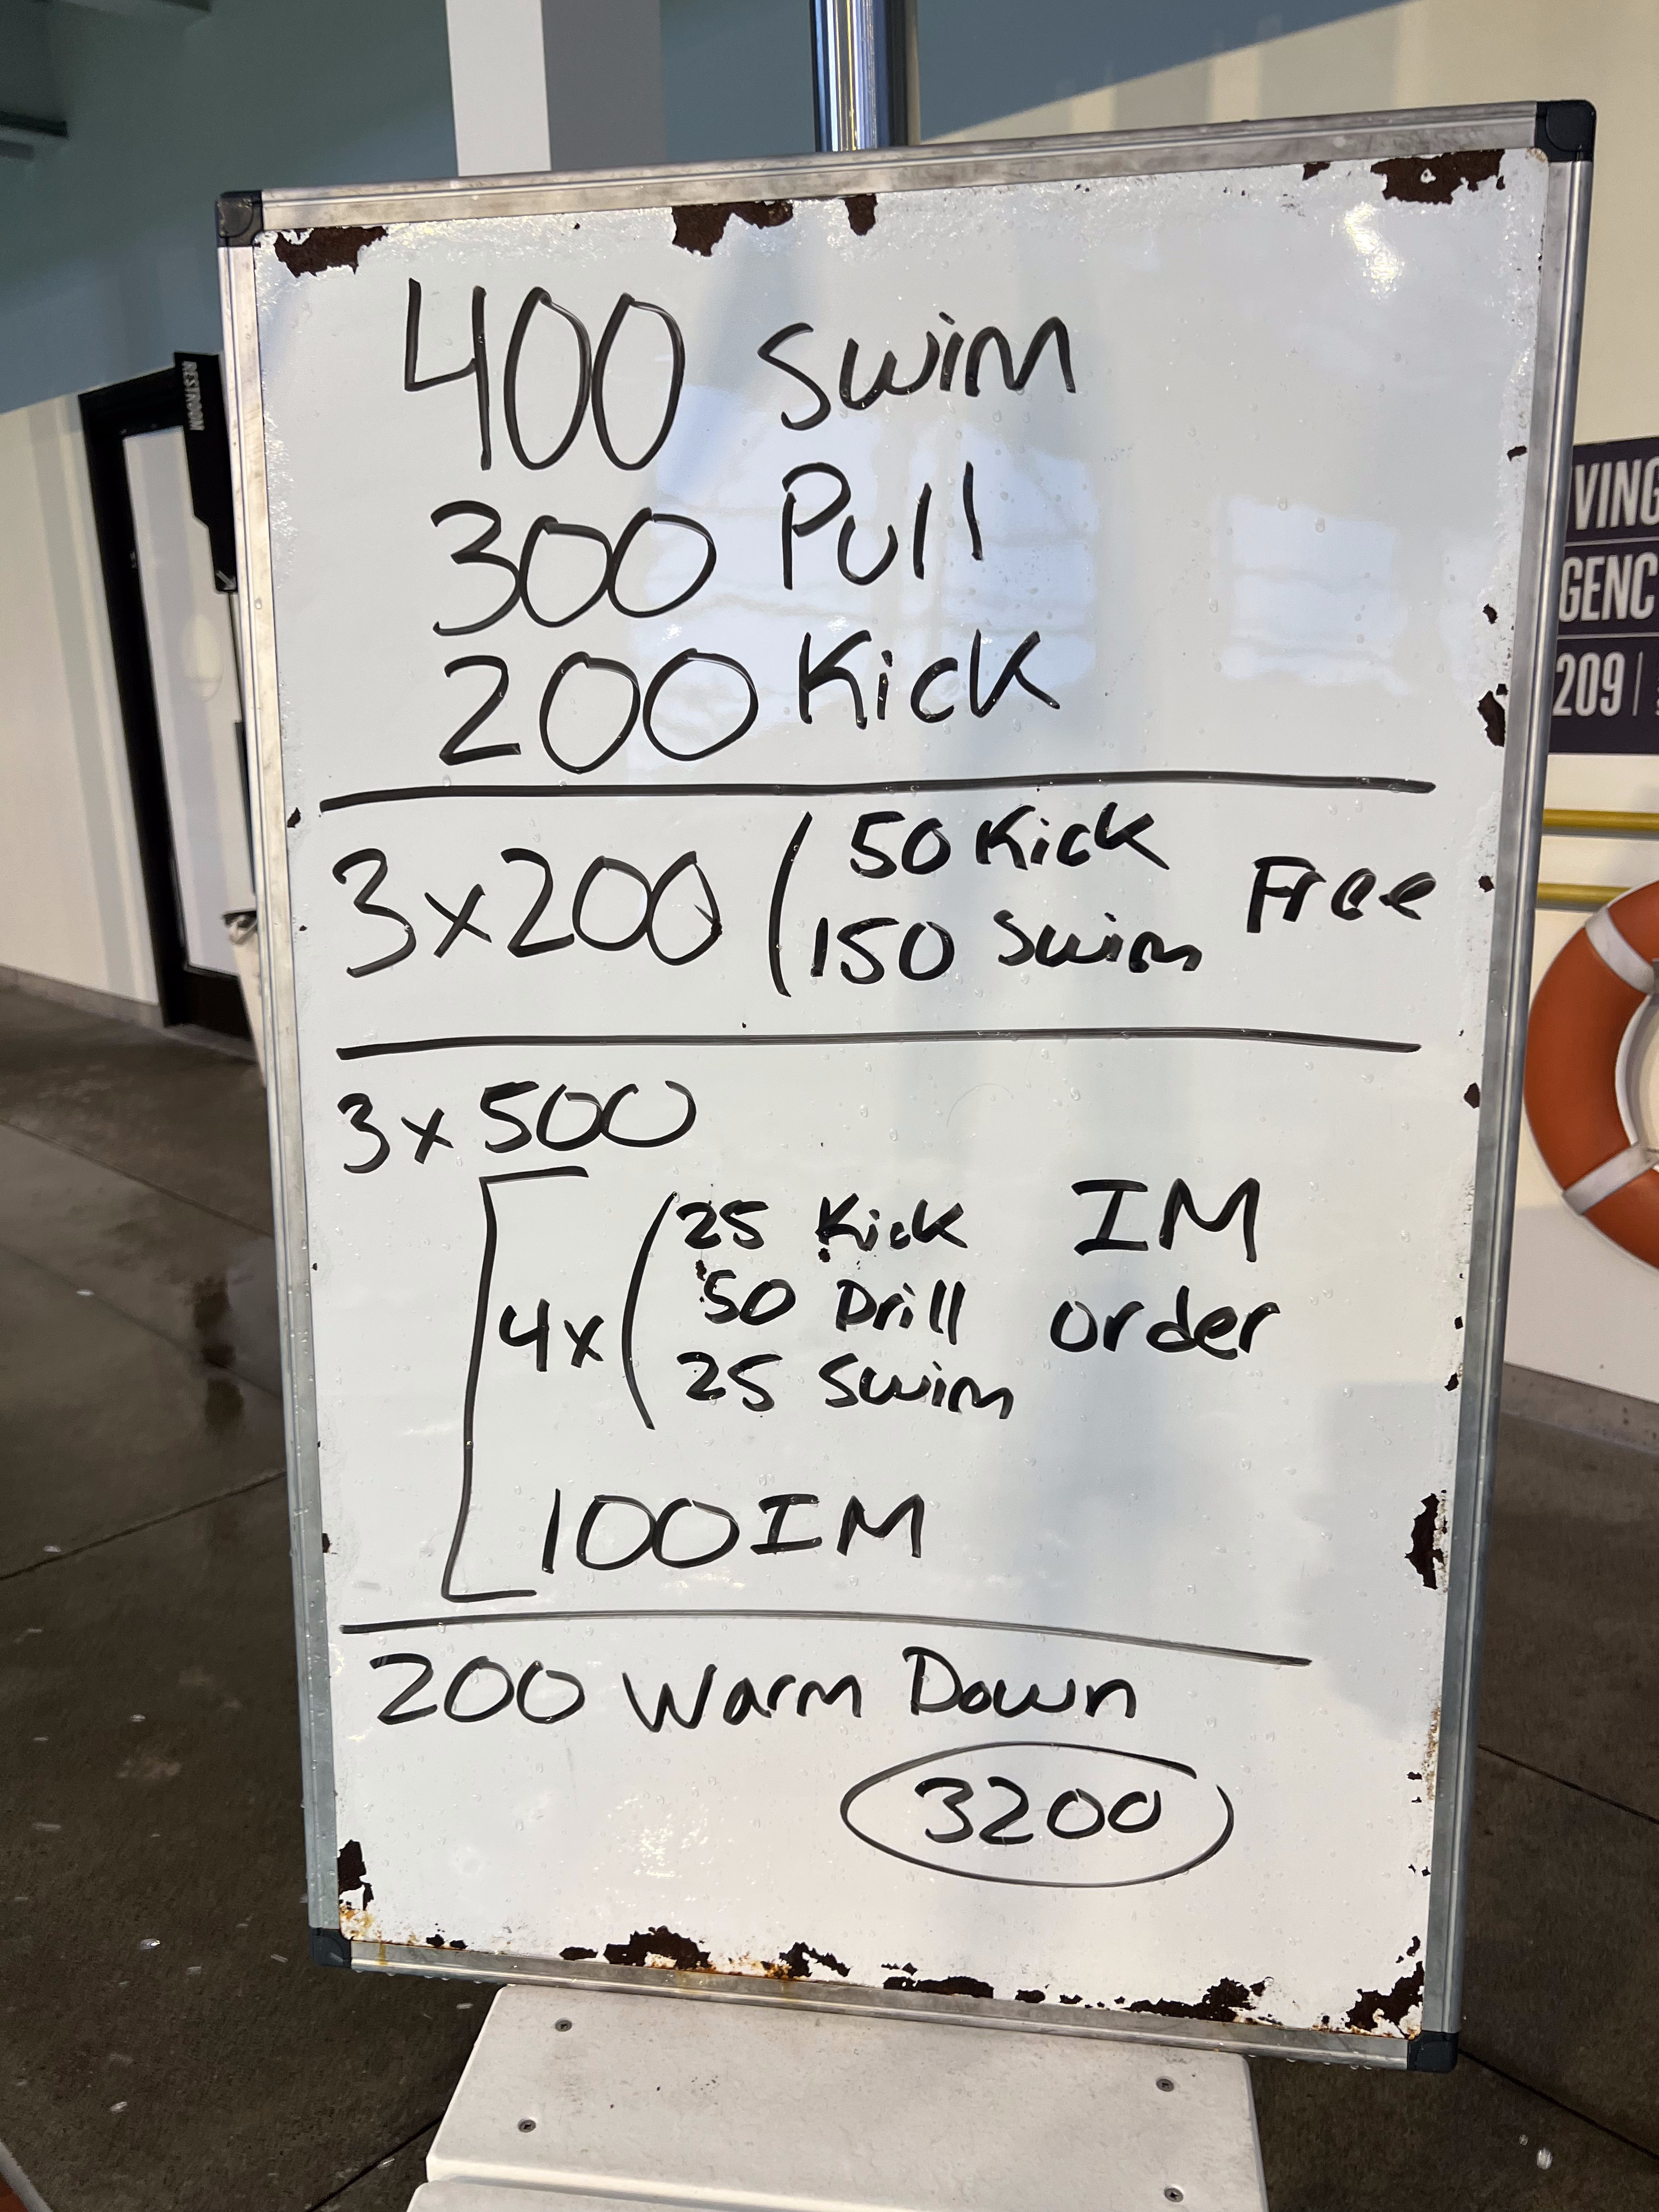 RESTROOM
400 Swim
300 Pull
200 Kick
3x200 ( 50 Kick
150 Swim Free
3x500
4x ( 25 Kick IM
50 Drill order
25 Swim
100 IM
200 Warm Down
3200
VING
GENC
209 |